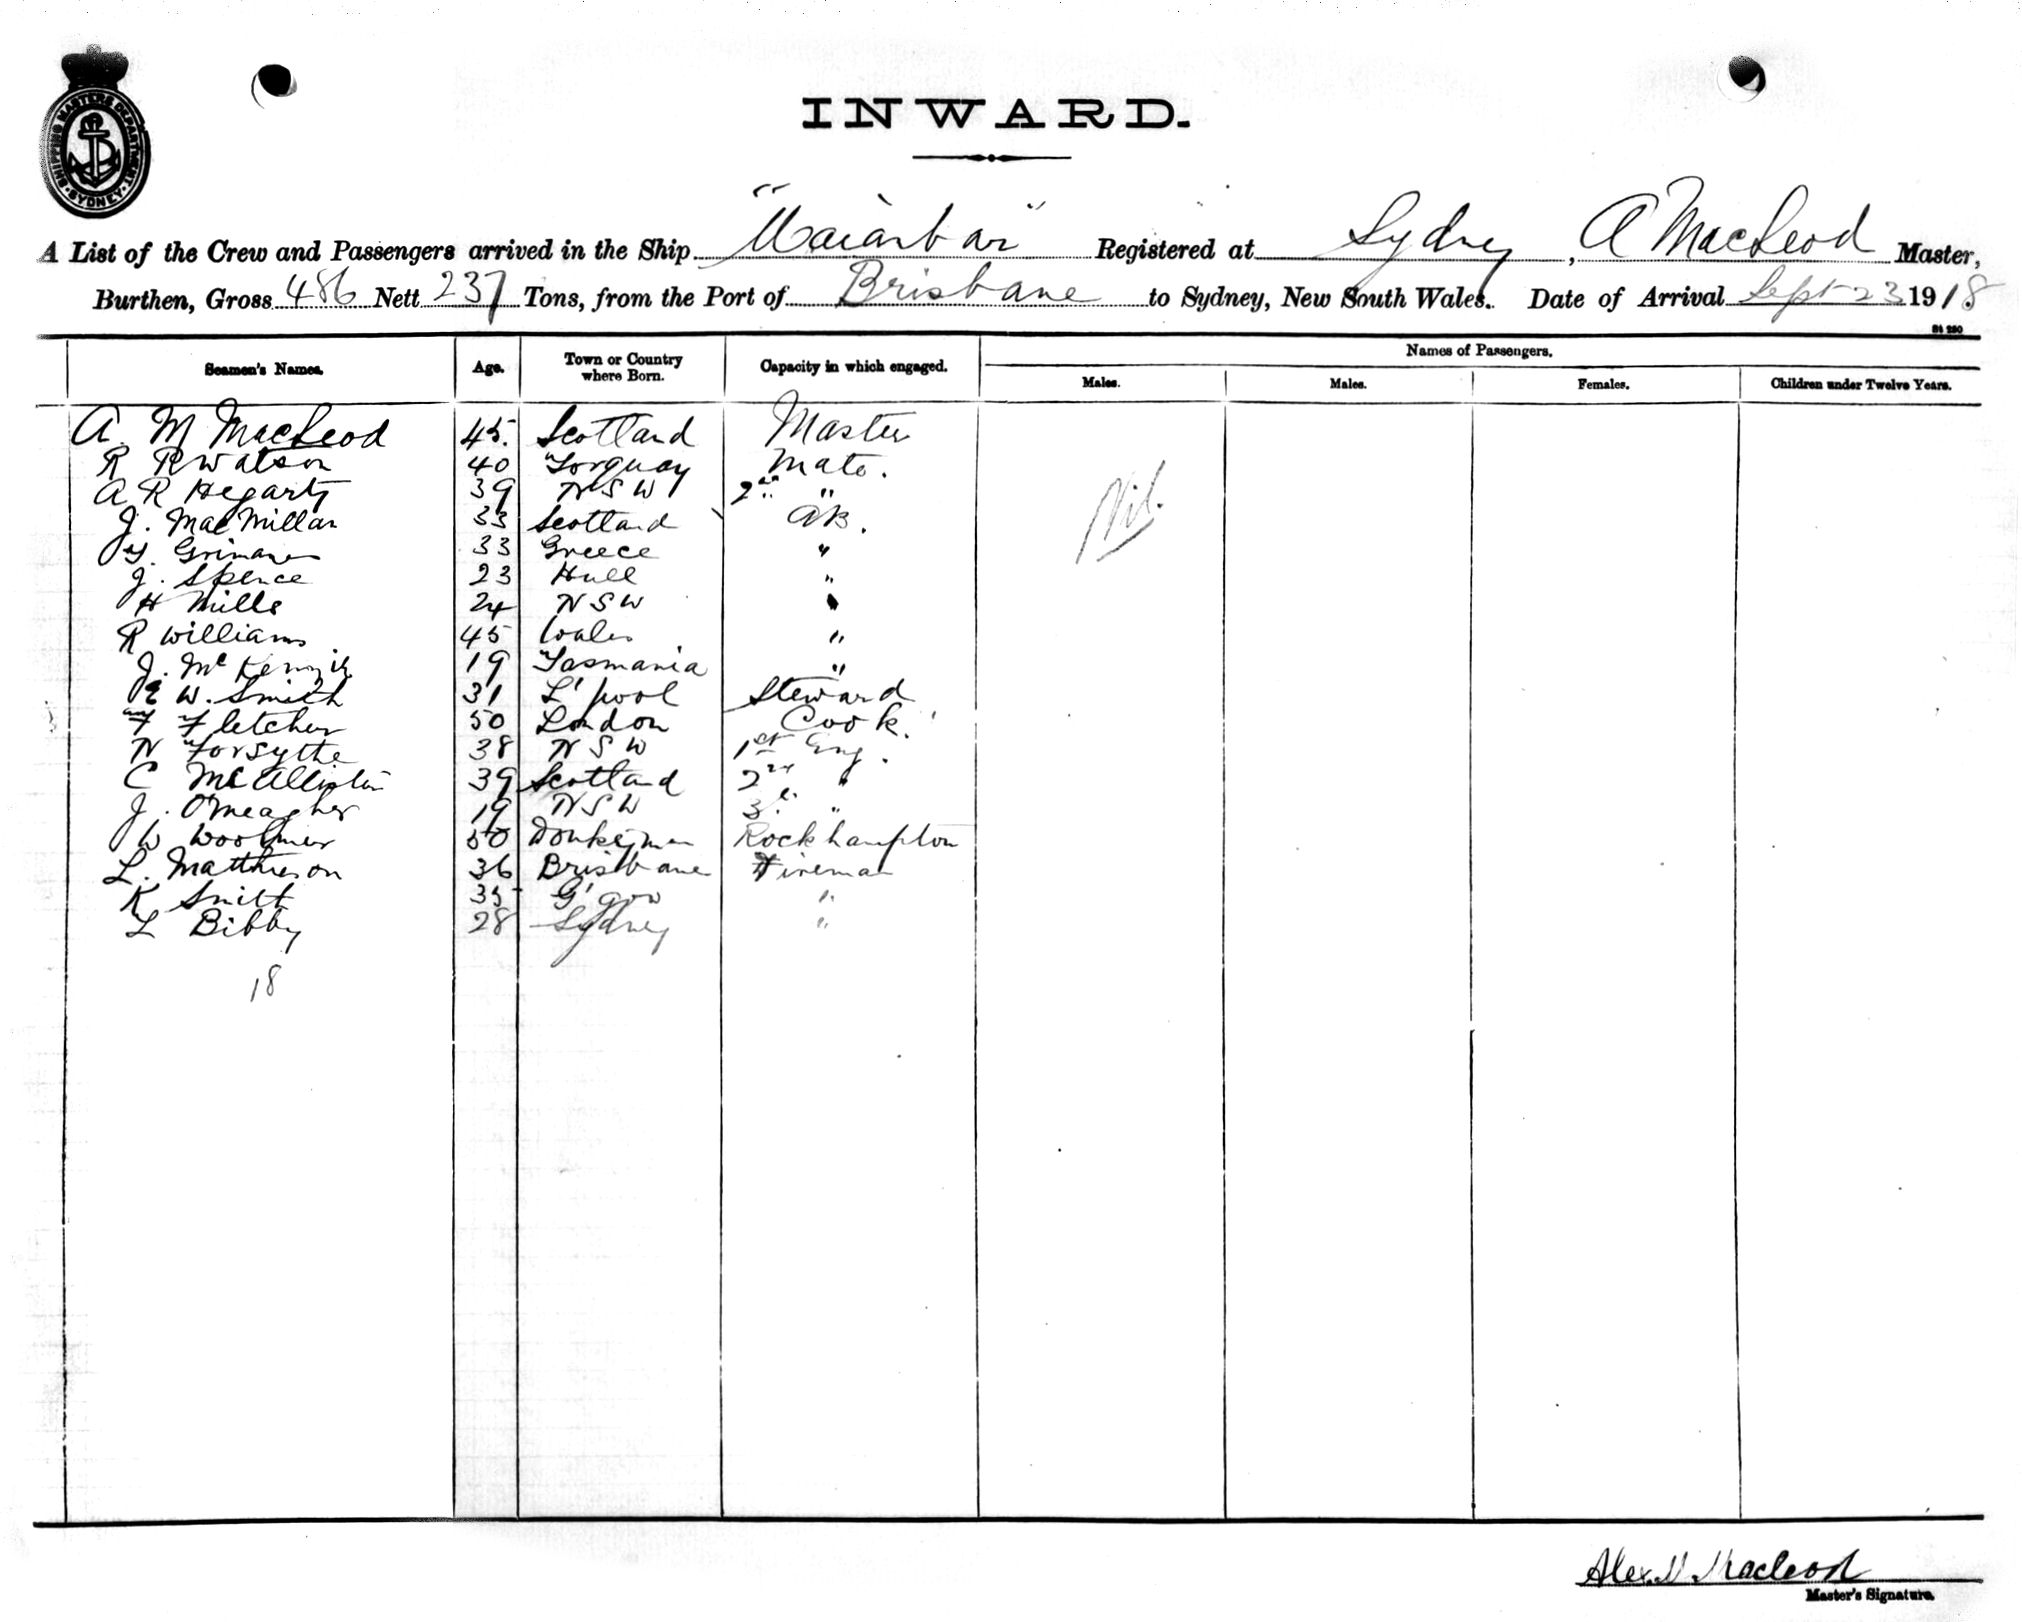 SHIPPING MASTERS DEPARTMENT SYDNEY
INWARD.
A List of the Crew and Passengers arrived in the Ship "Maianbar" Registered at Sydney, A MacLeod Master,
Burthen, Gross 486 Nett 237 Tons, from the Port of Brisbane to Sydney, New South Wales. Date of Arrival Sept 23 1918
St 280
Seamen's Names. Age. Town or Country where Born. Capacity in which engaged. Names of Passengers.
Males. Males. Females. Children under Twelve Years.
A. M MacLeod 45. Scotland Master
R R Watson 40 Torquay Mate.
A R Hegarty 39 NSW 2nd "
J. MacMillan 33 Scotland AB.
Nil.
G. 33 Greece "
J. Spence 23 Hull "
H Mills 24 NSW "
R Williams 45 Wales "
J. McKenzie 19 Tasmania "
E W. Smith 31 L'pool Steward
F Fletcher 50 London Cook.
N Forsythe 38 NSW 1st Eng.
C McAllister 39 Scotland 2nd "
J. O'Meagher 19 NSW 3. "
W Woolmer 50 Donkeyman Rockhampton
L. Matthieson 36 Brisbane Fireman
K Smith 35 G'gow "
L Bibby 28 Sydney "
18
Alex. M. Macleod
Master's Signature.